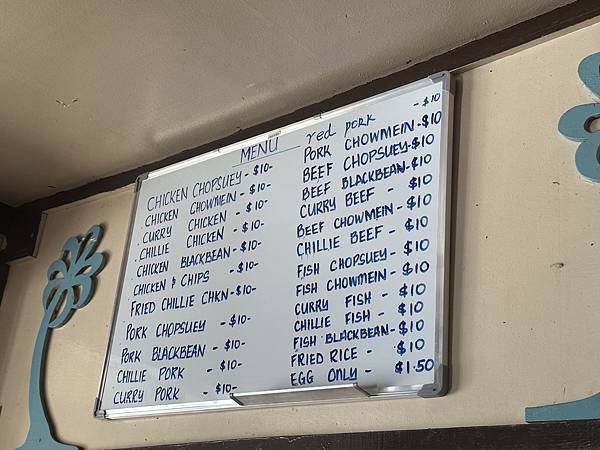 MENU
CHICKEN CHOPSUEY - $10-
CHICKEN CHOWMEIN - $10-
CURRY CHICKEN - $10-
CHILLIE CHICKEN - $10-
CHICKEN BLACKBEAN - $10-
CHICKEN & CHIPS - $10-
FRIED CHILLIE CHKN - $10-
PORK CHOPSUEY - $10-
PORK BLACKBEAN - $10-
CHILLIE PORK - $10-
CURRY PORK - $10-
red PORK - $10
PORK CHOWMEIN - $10
BEEF CHOPSUEY - $10
BEEF BLACKBEAN - $10
CURRY BEEF - $10
BEEF CHOWMEIN - $10
CHILLIE BEEF - $10
FISH CHOPSUEY - $10
FISH CHOWMEIN - $10
CURRY FISH - $10
CHILLIE FISH - $10
FISH BLACKBEAN - $10
FRIED RICE - $10
EGG ONLY - $1.50